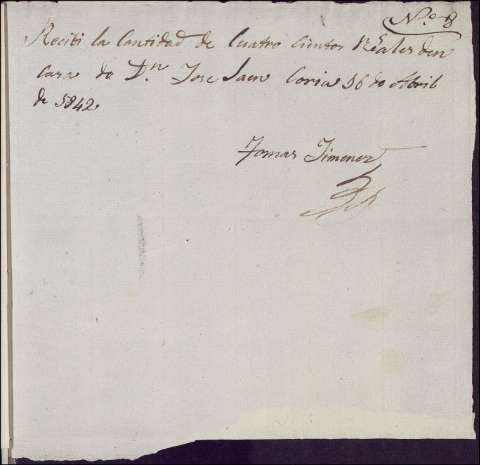 N.º 8
Recibi la Cantidad de Cuatro cientos Reales den
casa de D.n Jose Saen Coria 16 de Abril
de 1842
Tomas Jimenez